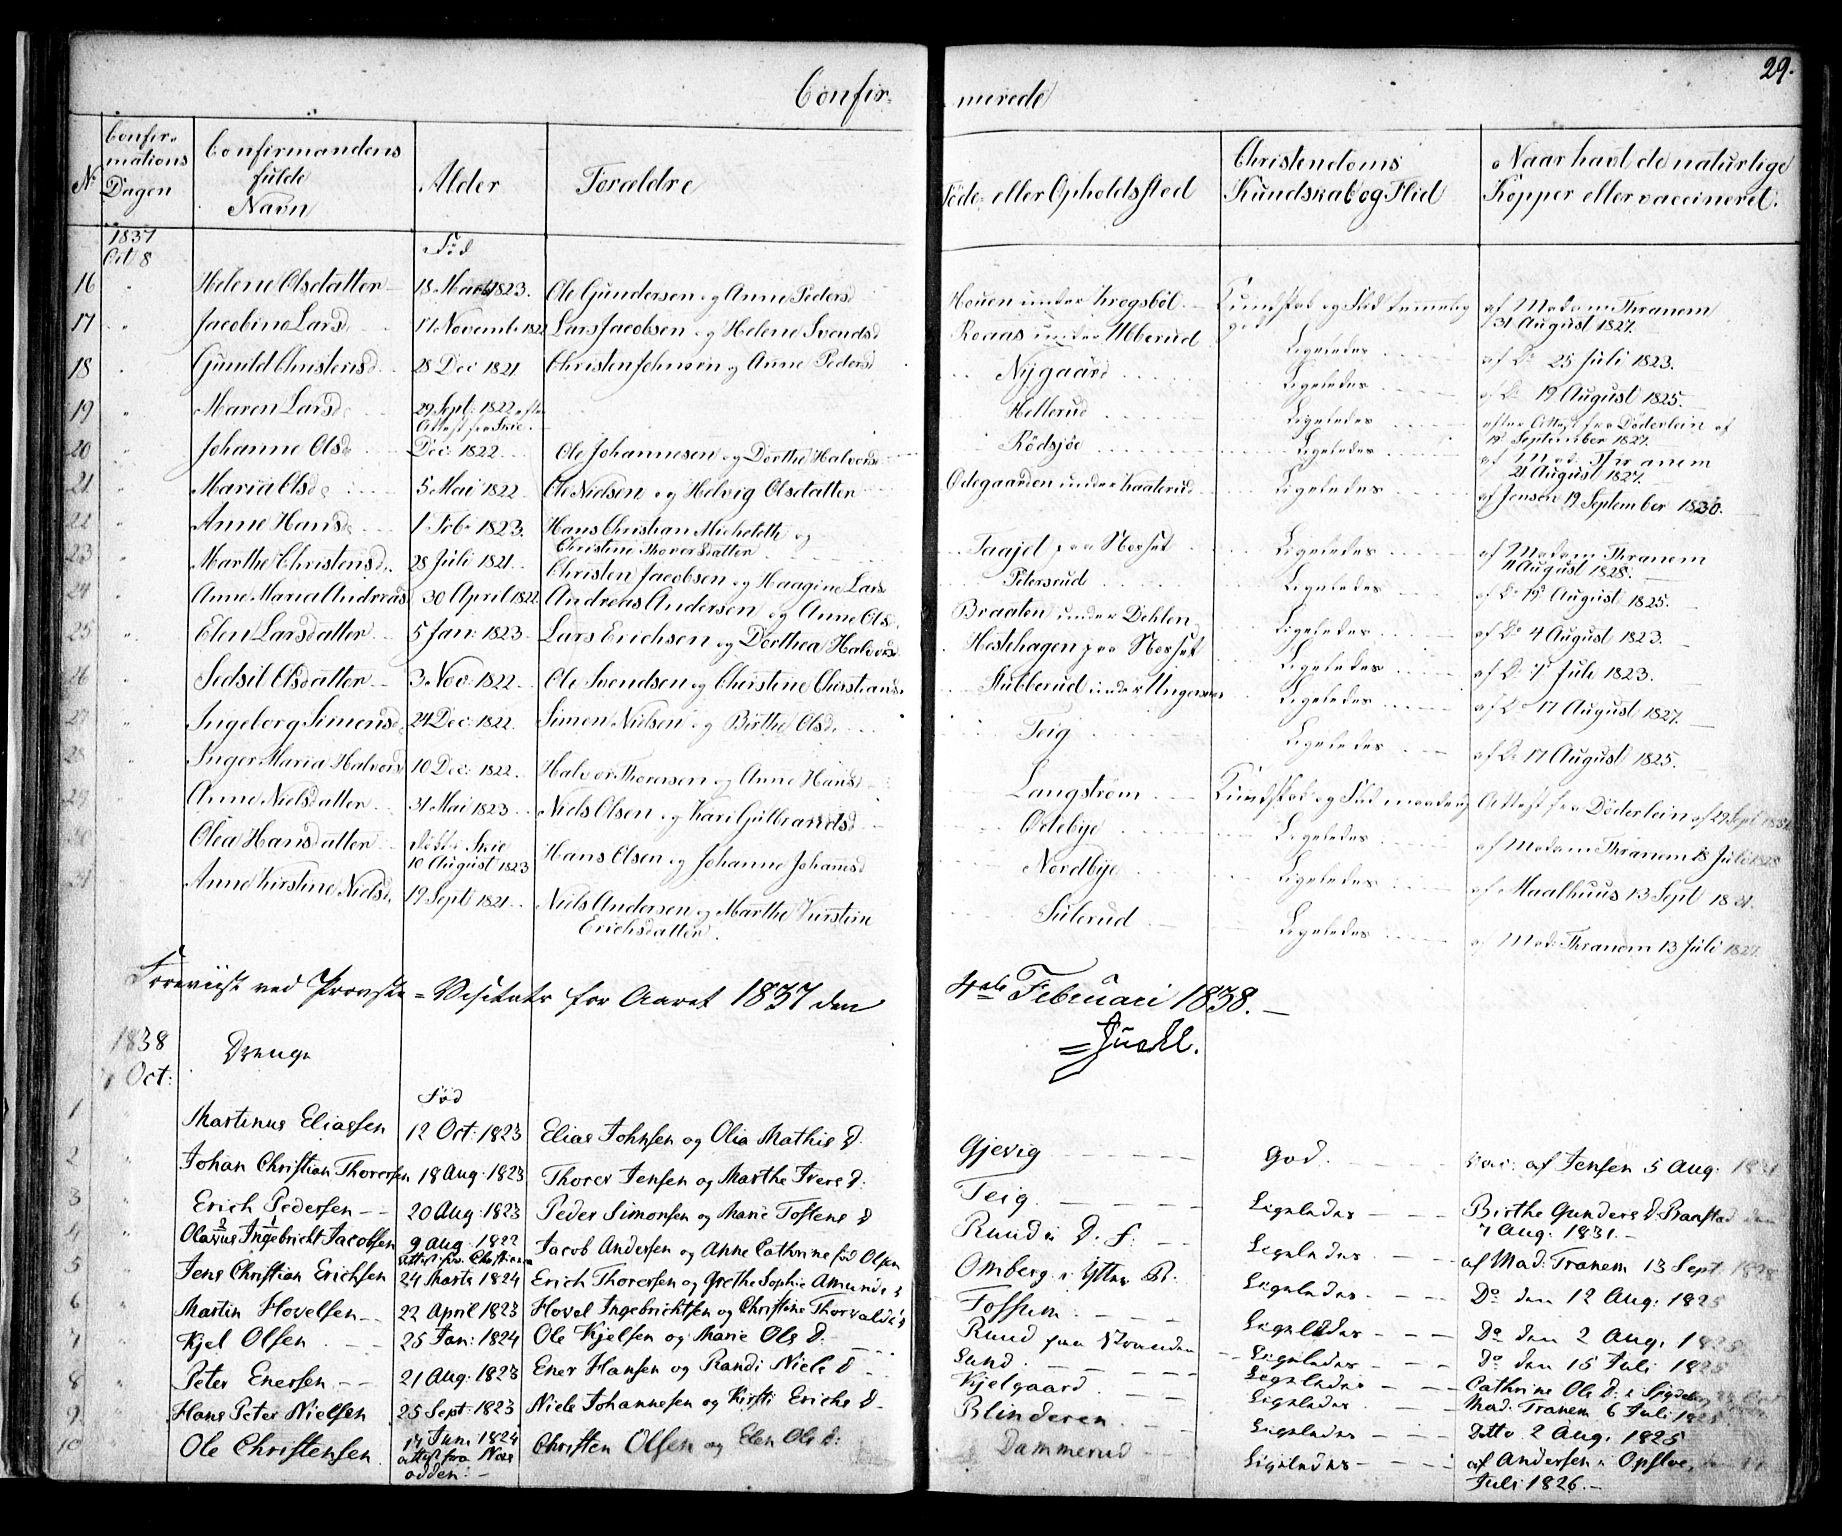 29.
Confir- merede
No
Confir-
mations
Dagen
Confirmandens
fulde
Navn
Alder
Forældre
Föde- eller Opholdssted
Christendoms
Kundskab og Flid
Naar havt de naturlige
Kopper eller vaccineret.
1837
Oct 8
Fød
16 Helene Olsdatter 18 Marts 1823. Ole Gundersen og Anne Pedersd Houen under Krogsböl Kundskab og Flid temmelig god af Madam Thranem
31 August 1827.
17 Jacobine Larsd 17 Novembr 1822 Lars Jacobsen og Helene Svendsd Roaas under Alberud Ligeledes af Do 25 Juli 1823.
18 Gunild Christensd 28 Dec 1821 Christen Johnsen og Anne Pedersd Nygaard Ligeledes af Do 19 August 1825.
19 Maren Larsd 29 Sept: 1822 efter
Attest fra Skie. Hellerud Ligeledes efter Attest fra Döderlein af
19 September 1827.
20 Johanne Olsd Dec: 1822 Ole Johannesen og Dorthe Halvorsd Rödsjöe Ligeledes af Mad. Thranem
21 August 1827.
21 Maria Olsd 5 Mai 1822 Ole Nielsen og Helvig Olsdatter Ödegaarden under Kaaterud Ligeledes af Jensen 19 September 1830.
22 Anne Hansd 1 Feb: 1823. Hans Christian Micheleth og
Christine Thorersdatter Taajet paa Nesset Ligeledes af Madam Thranem
11 August 1828.
23 Marthe Christensd. 28 Juli 1821. Christen Jacobsen og Haagine Lars Petersrud Ligeledes af Do 19 August 1825.
24 Anne Maria Andreasd 30 April 1822 Andreas Andersen og Anne Ols. Braaten under Dehlen Ligeledes af Do 4 August 1823.
25 Elen Larsdatter 5 Jan: 1823 Lars Erichsen og Dorthea Halvorsd Hestehagen paa Nesset Ligeledes af Do 7 Juli 1823.
26 Sedsil Olsdatter 3 Nov: 1822 Ole Svendsen og Christine Christians Stubberud under Ungersnes Ligeledes af Do 17 August 1827.
27 Ingeborg Simensd 24 Dec: 1822. Simen Nielsen og Birthe Olsd. Teig Ligeledes af Do 17 August 1825.
28 Inger Maria Halvorsd 10 Dec: 1822. Halvor Thoresen og Anne Hansd Langström Kundskab og Flid maadelig Attest fra Döderlein af 29 Sept
29 Anne Nielsdatter 31 Mai 1823 Niels Olsen og Kari Gulbrandsd Ödebye Ligeledes af Madam Thranem 18 Juli
30 Olea Hansdatter Født i Skie
10 August 1823 Hans Olsen og Johanne Johannsd Nordbye Ligeledes af Maalhuus 13 Sept
31 Anne Kirstine Nielsd. 19 Sept 1821 Niels Andersen og Marthe Kirstine
Erichsdatter. Sulerud Ligeledes af Mad: Thranem 13 Juli 1827.
Foreviist ved Provste-Visitats for Aaret 1837 den 4de Februari 1838.
Juell.
1838
7 Oct: Drenge
Fød
1 Martinus Eliassen 12 Oct: 1823 Elias Johnsen og Olia Mathis D. Gjevig God. vac: af Jensen 5 Aug: 1831
2 Johan Christian Thorersen 18 Aug: 1823 Thorer Jensen og Marthe Ivers D: Teig Ligeledes Birthe Gunders D: Ranstad den
7 Aug: 1831.
3 Erich Pedersen 20 Aug: 1823 Peder Simonsen og Marie Tostens D Ruud i D: f: Ligeledes af Mad: Tranem 13 Sept 1828
4 Olavus Ingebricht Jacobsen 9 Aug: 1822
Attest fra Christiania Jacob Andersen og Anne Cathrine fød Olsen Omberg i Yttre R: Ligeledes Do den 12 Aug: 1825
5 Jens Christian Erichsen 24 Marts 1824 Erich Thorersen og Grethe Sophie Amunds D Fossum Ligeledes Do den 2 Aug: 1825
6 Martin Hovelsen 22 April 1823 Hovel Ingebrichtsen og Christine Thorvalds D Ruud paa Stranden Ligeledes Do den 15 Juli 1825
7 Kjel Olsen 25 Jan: 1824 Ole Kjelsen og Marie Ols D: Lund Ligeledes Cathrine Ols D: i
8 Peter Enersen 21 Aug: 1823 Ener Hansen og Randi Niels D Kjelgaard Ligeledes Mad: Tranem 6 Juli 1825
9 Hans Peter Nielsen 25 Sept: 1823 Niels Johannesen og Kirsti Erichs D Blinderen Ligeledes Ditto 2 Aug: 1825
10 Ole Christensen 17 Juni 1824
attest fra Næs
odden: Christen Olsen og Elen Ols D: Dammerud Ligeledes af Andersen i Opsloe,
Juli 1826.